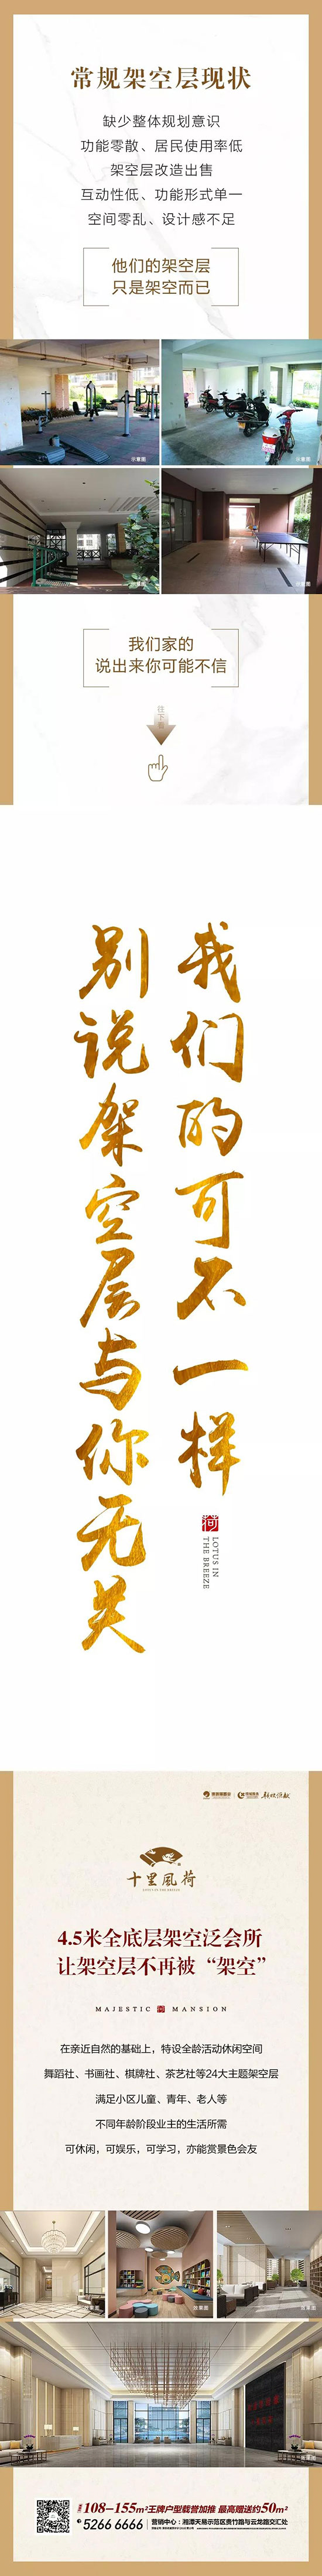 常规架空层现状
缺少整体规划意识
功能零散、居民使用率低
架空层改造出售
互动性低、功能形式单一
空间零乱、设计感不足
他们的架空层
只是架空而已
示意图
示意图
示意图
示意图
我们家的
说出来你可能不信
往下翻
我们的可不一样
别说架空层与你无关
荷
LOTUS IN
THE BREEZE
十里風荷
4.5米全底层架空泛会所
让架空层不再被“架空”
MAJESTIC MANSION
在亲近自然的基础上，特设全龄活动休闲空间
舞蹈社、书画社、棋牌社、茶艺社等24大主题架空层
满足小区儿童、青年、老人等
不同年龄阶段业主的生活所需
可休闲，可娱乐，可学习，亦能赏景色会友
效果图
效果图
效果图
效果图
108-155m²王牌户型载誉加推 最高赠送约50m²
5266 6666
营销中心：湘潭天易示范区贵竹路与云龙路交汇处